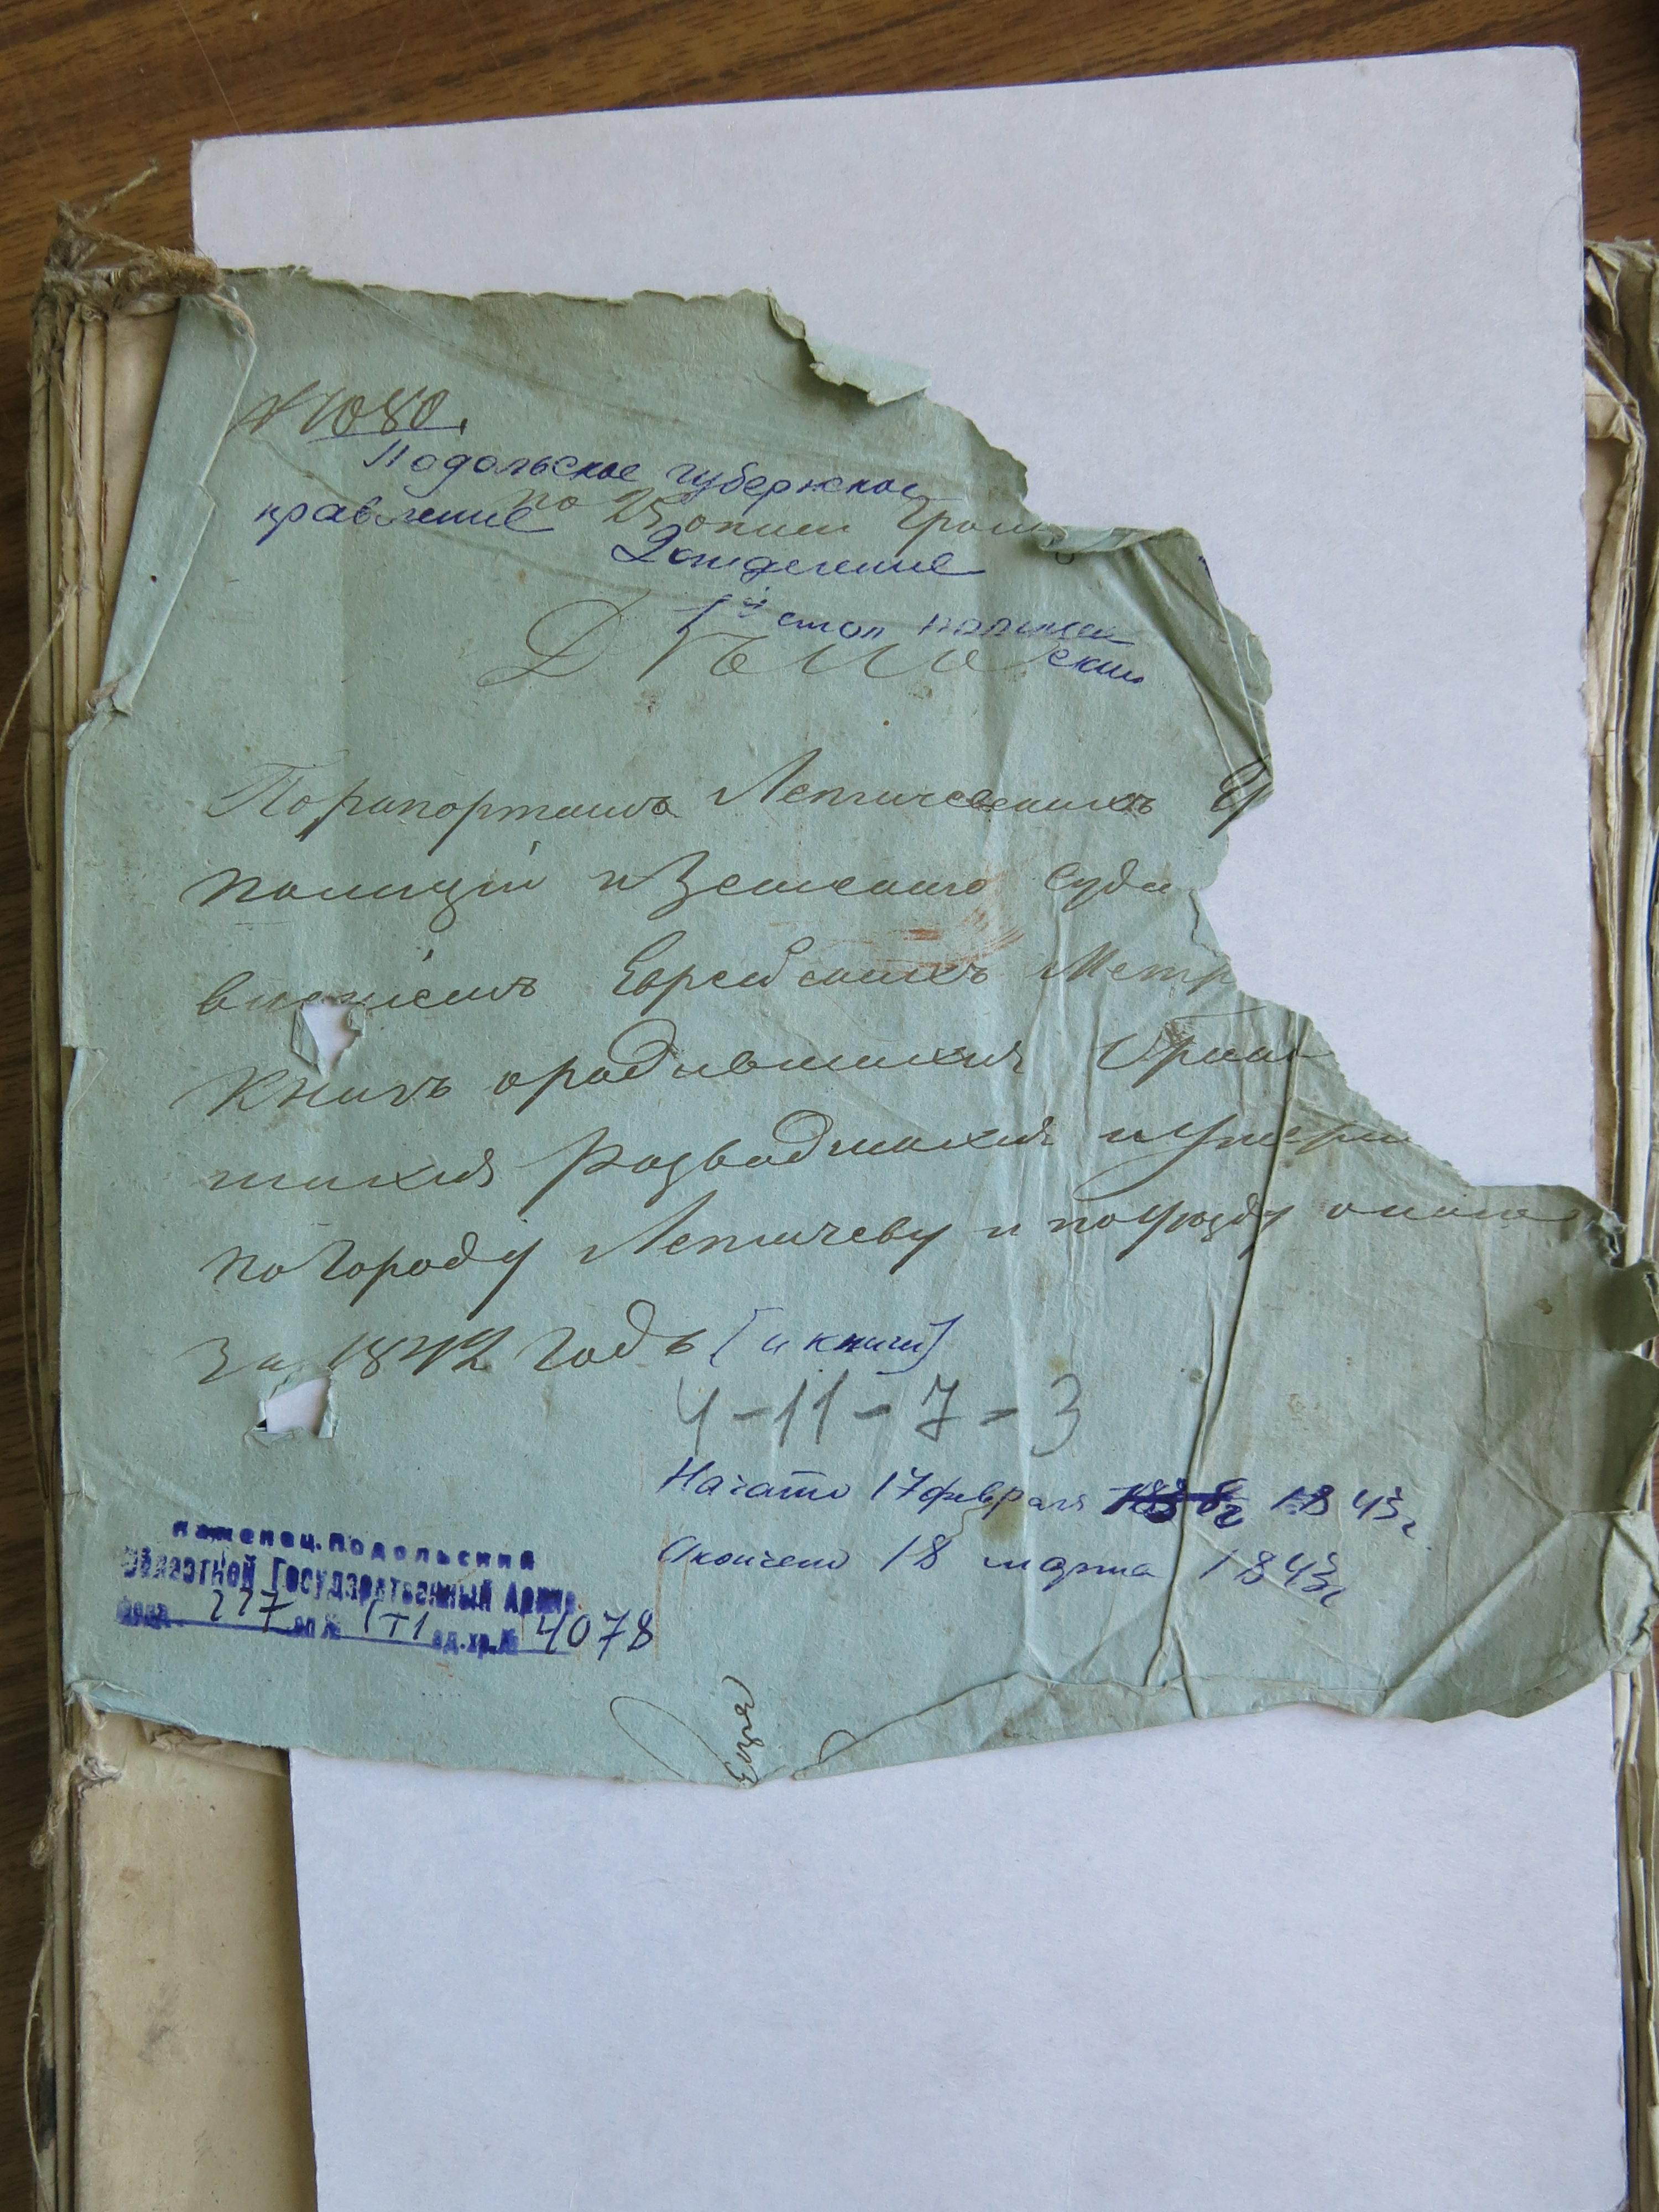 № 1080.
Подольское губернское
правление
по 25 описи
2 отделение
1й стол полицей
ский
Дѣло
По рапортамъ Летичевскихъ
полиціи и Земскаго суда
Еврейскихъ Метр
Книгъ о родившихся Брако
шихся разводшихся и умер
по городу Летичеву и по уѣзду онаго
за 1842 годъ [и книги]
4-11-7=3
Начато 17 февраля 1843 г
Окончено 18 марта 1843 г
Каменец.Подольский
Областной Государственный Архив
Фонд 227 оп № 1т1 ед.хр.№ 4078